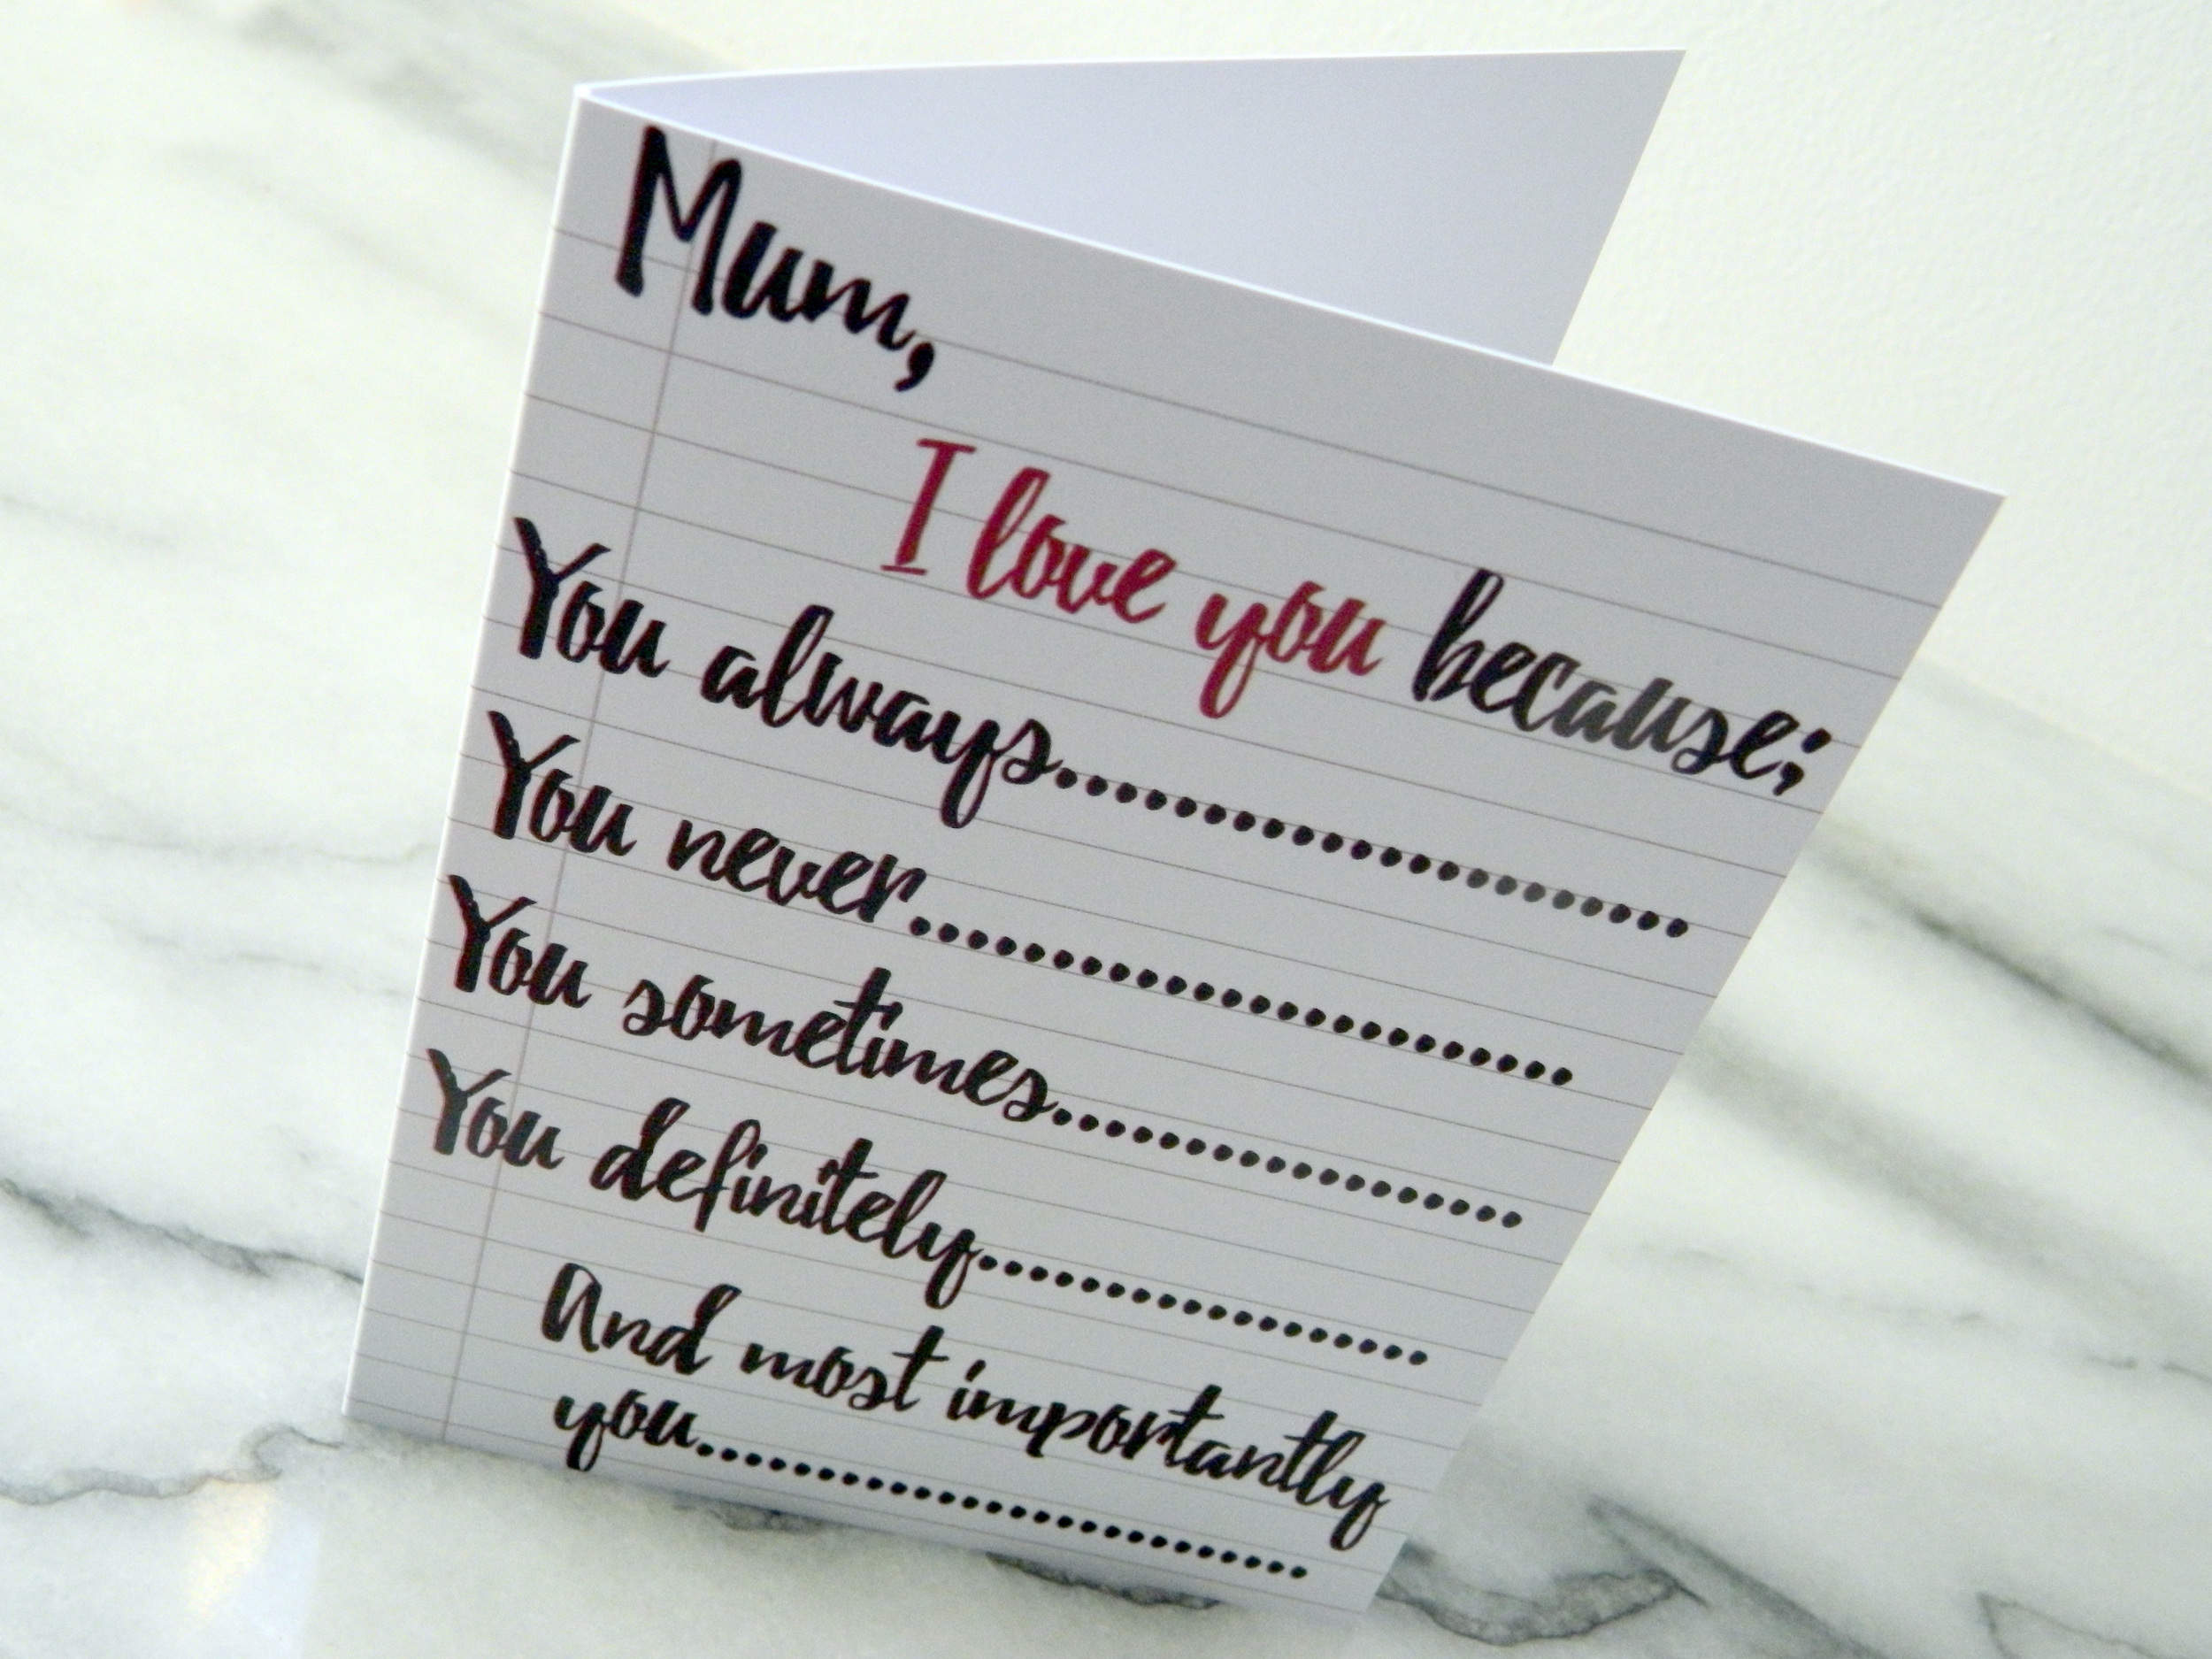 Mum,
I love you because;
You always......................
You never........................
You sometimes..................
You definitely..................
And most importantly
you..........................